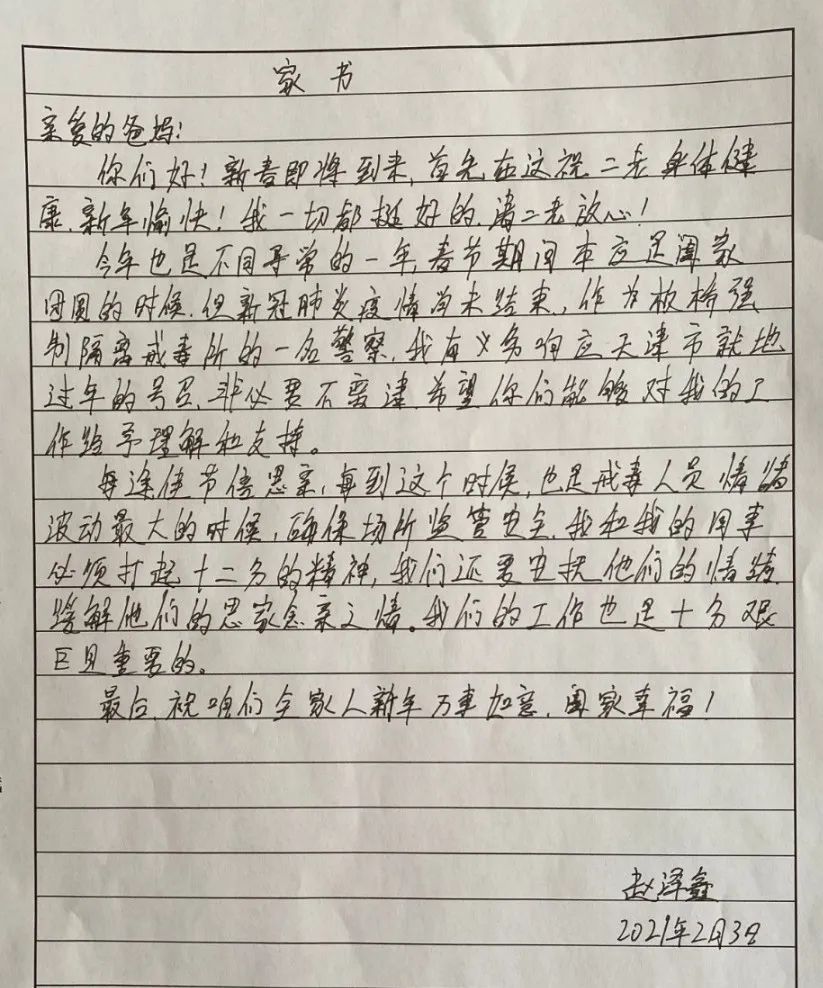 家书
亲爱的爸妈:
你们好!新春即将到来,首先在这祝二老身体健
康,新年愉快!我一切都挺好的,请二老放心!
今年也是不同寻常的一年,春节期间本应是阖家
团圆的时候,但新冠肺炎疫情尚未结束,作为板桥强
制隔离戒毒所的一名警察,我有义务响应天津市就地
过年的号召,非必要不离津,希望你们能够对我的工
作给予理解和支持。
每逢佳节倍思亲,每到这个时候,也是戒毒人员情绪
波动最大的时候,确保场所监管安全,我和我的同事
必须打起十二分的精神,我们还要安抚他们的情绪,
缓解他们的思家念亲之情。我们的工作也是十分艰
巨且重要的。
最后,祝咱们全家人新年万事如意,阖家幸福!
赵泽鑫
2021年2月3日